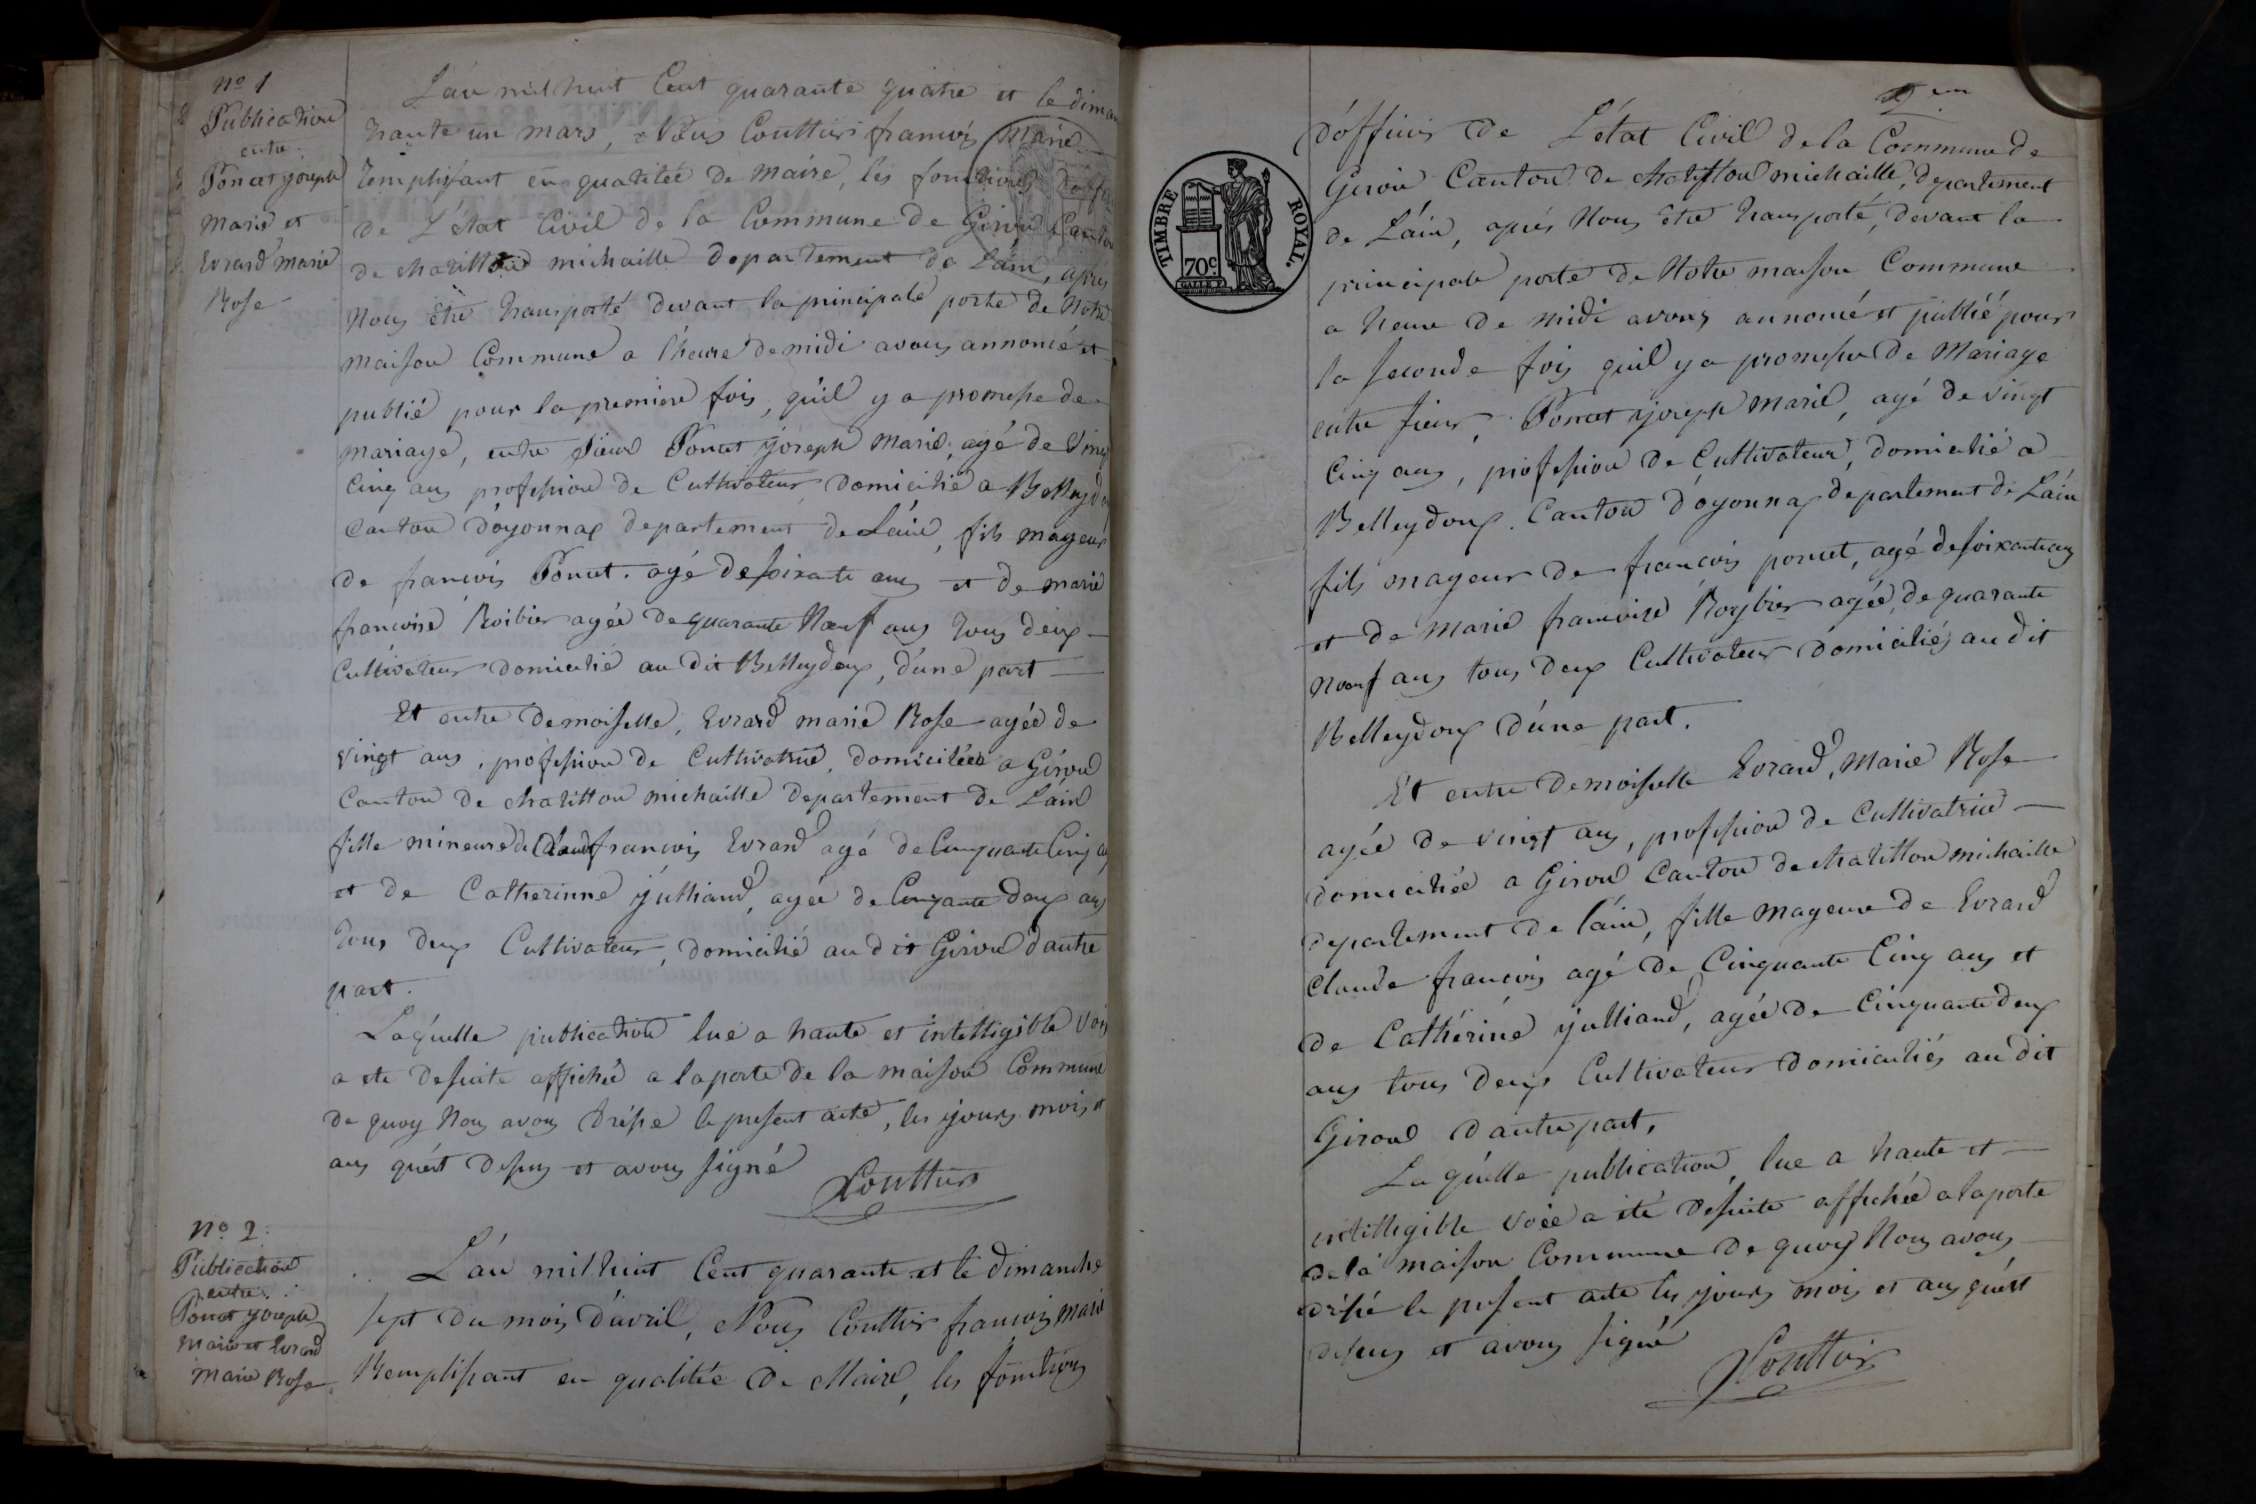 nº 1
Publication
entre
Poncet joseph
Marie et
Evrard marie
Rose
L'an mil huit Cent quarante quatre et le diman
trante un mars, Nous Couttier francois Marie
Remplissant en qualitée de Maire, les fonctions d'offi
de L'état Civil de la Commune de Giron Canton
de chatillon michaille departement de L'ain, après
Nous être transporté devant la principale porte de Notre
maison Commune a l'heure de midi avons annoncé et
publié pour la premiere fois, qu'il y a promesse de
mariage, entre sieur Poncet joseph marie, agé de Ving
Cinq ans profession de Cultivateur domicilié a Belleydou
Canton d'oyonnax departement de L'ain, fils mageur
de francois Poncet. agé de soixante ans et de marie
francoise Roibier agée de quarante Neuf ans tous deux
Cultivateur domicilié au dit Belleydoux, d'une part
Et entre demoiselle, Evrard marie Rose agée de
vingt ans, profession de Cultivatrice, domiciliée a Giron
Canton de chatillon michaille departement de L'ain
fille mineure de Claude francois Evrard agé de Cinquante Cinq a
et de Catherinne julliand, agée de Cinquante deux ans
tous deux Cultivateur, domicilié au dit Giron d'autre
part.
Laquelle publication lue a haute et intelligible Voix
a ete desuite affichée a la porte de la maison Commune
de quoy Nous avons drésse le present acte, les jours mois et
ans quést dessus et avons signé
Couttier
nº 2
Publication
entre
Poncet joseph
Marie et Evrard
Marie Rose
L'an mil huit Cent quarante et le dimanche
sept du mois d'avril, Nous Couttier francois Marie
Remplissant en qualitée de Maire, les fonctions
2em
d'officier de L'état Civil de la Commune de
Giron Canton de chatillon michaille, departement
de L'ain, aprés Nous être transporté, devant la
principale porte de Notre maison Commune
a heure de midi avons annoncé et publié pour
la seconde fois quil y a promesse de Mariage
entre sieur, Poncet joseph Marie, agé de vingt
Cinq ans, profession de Cultivateur, domicilié a
Belleydoux. Canton d'oyonnax departement de L'ain
fils mageur de francois poncet, agé de soixante ans
et de Marie francoise Roybier agée de quarante
Neuf ans tous deux Cultivateur domiciliés au dit
Belleydoux d'une part.
Et entre demoiselle Evrard, Marie Rose
agée de vingt ans, profession de Cultivatrice
domiciliée a Giron Canton de chatillon michaille
departement de l'ain, fille mageure de Evrard
Claude francois agé de Cinquante Cinq ans et
de Cathérine julliand, agée de Cinquante deux
ans tous deux Cultivateur domiciliés au dit
Giron d'autre part.
Laquelle publication, lue a haute et
intelligible voix a été desuite affichée a la porte
de la maison Commune de quoy Nous avons
dréssé le present acte les jours mois et ans quést
dessus et avons signé
Couttier
TIMBRE ROYAL.
70c